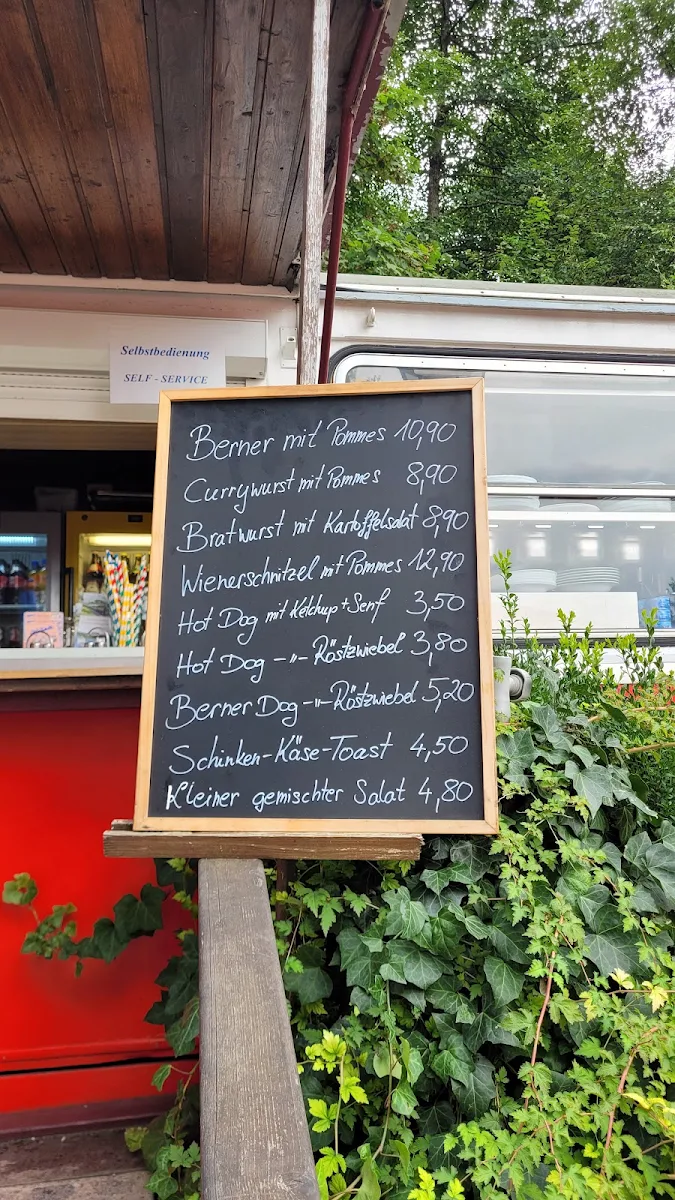 Selbstbedienung
SELF - SERVICE
Berner mit Pommes 10,90
Currywurst mit Pommes 8,90
Bratwurst mit Kartoffelsalat 8,90
Wienerschnitzel mit Pommes 12,90
Hot Dog mit Ketchup + Senf 3,50
Hot Dog -"- Röstzwiebel 3,80
Berner Dog -"- Röstzwiebel 5,20
Schinken-Käse-Toast 4,50
Kleiner gemischter Salat 4,80